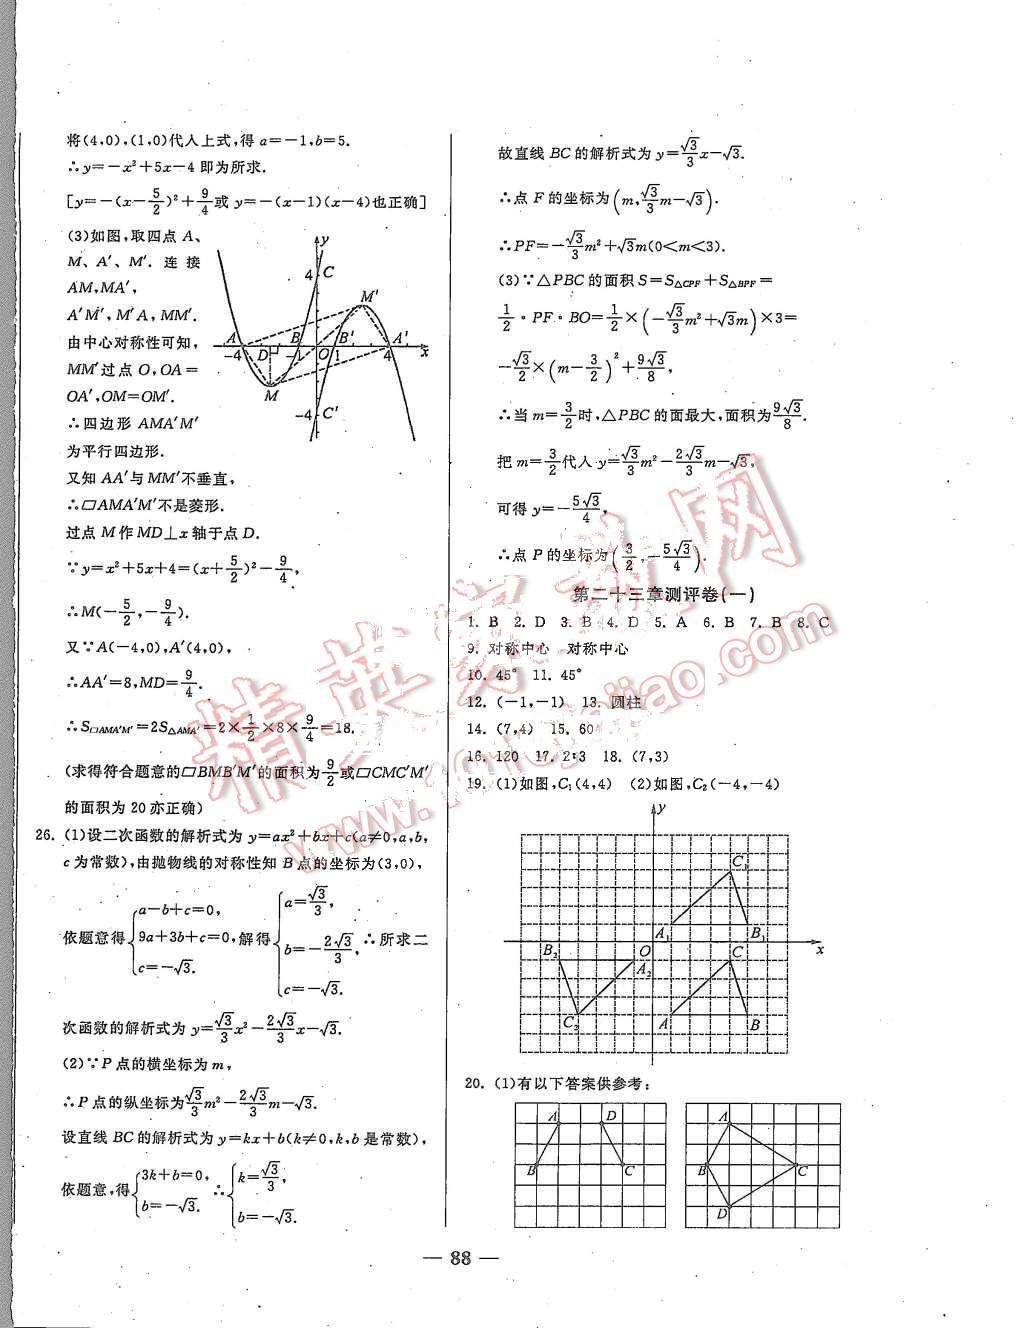 将(4,0),(1,0)代人上式,得a=-1,b=5.
∴y=-x²+5x-4即为所求.
[y=-(x-5/2)²+9/4或y=-(x-1)(x-4)也正确]
(3)如图,取四点A、
M、A′、M′. 连接
AM,MA′,
A′M′,M′A,MM′.
由中心对称性可知,
MM′过点O,OA=
OA′,OM=OM′.
∴四边形AMA′M′
为平行四边形.
y
4 C
M′
A B B′ A′
-4 D -1 O 1 4 x
M
-4 C′
又知AA′与MM′不垂直,
∴▱AMA′M′不是菱形.
过点M作MD⊥x轴于点D.
∵y=x²+5x+4=(x+5/2)²-9/4,
∴M(-5/2,-9/4).
又∵A(-4,0),A′(4,0),
∴AA′=8,MD=9/4.
∴S▱AMA′M′=2S△AMA′=2×1/2×8×9/4=18.
(求得符合题意的▱BMB′M′的面积为9/2或▱CMC′M′
的面积为20亦正确)
26. (1)设二次函数的解析式为y=ax²+bx+c(a≠0,a,b,
c为常数),由抛物线的对称性知B点的坐标为(3,0),
依题意得{a-b+c=0, 9a+3b+c=0, c=-√3. 解得{a=√3/3, b=-2√3/3 c=-√3. ∴所求二
次函数的解析式为y=√3/3x²-2√3/3x-√3.
(2)∵P点的横坐标为m,
∴P点的纵坐标为√3/3m²-2√3/3m-√3.
设直线BC的解析式为y=kx+b(k≠0,k,b是常数),
依题意,得{3k+b=0, b=-√3. ∴{k=√3/3, b=-√3.
故直线BC的解析式为y=√3/3x-√3.
∴点F的坐标为(m,√3/3m-√3).
∴PF=-√3/3m²+√3m(0<m<3).
(3)∵△PBC的面积S=S△CPF+S△BPF=
1/2·PF·BO=1/2×(-√3/3m²+√3m)×3=
-√3/2×(m-3/2)²+9√3/8,
∴当m=3/2时,△PBC的面最大,面积为9√3/8.
把m=3/2代人y=√3/3m²-2√3/3m-√3,
可得y=-5√3/4,
∴点P的坐标为(3/2,-5√3/4).
第二十三章测评卷(一)
1. B 2. D 3. B 4. D 5. A 6. B 7. B 8. C
9. 对称中心 对称中心
10. 45° 11. 45°
12. (-1,-1) 13. 圆柱
14. (7,4) 15. 60
16. 120 17. 2:3 18. (7,3)
19. (1)如图,C₁(4,4) (2)如图,C₂(-4,-4)
y
C₁
A₁ B₁ x
B₂ O C
A₂
C₂ A B
20. (1)有以下答案供参考:
A D
B C
A
B C
D
— 88 —
精英家教网